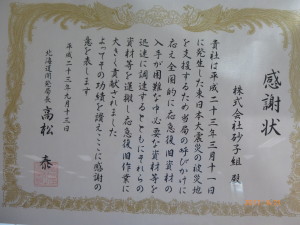 感謝状
株式会社砂子組 殿
貴社は平成二十三年三月十一日
に発生した東日本大震災の被災地
を支援するため当局の呼びかけに
応え全国的に応急復旧資材の
入手が困難な中必要な資材等を
迅速に調達するとともにそれらの
資材等を運搬し応急復旧作業に
大きく貢献されました
よってその功績を讃えここに感謝の
意を表します
平成二十三年九月十三日
北海道開発局長 高松 泰